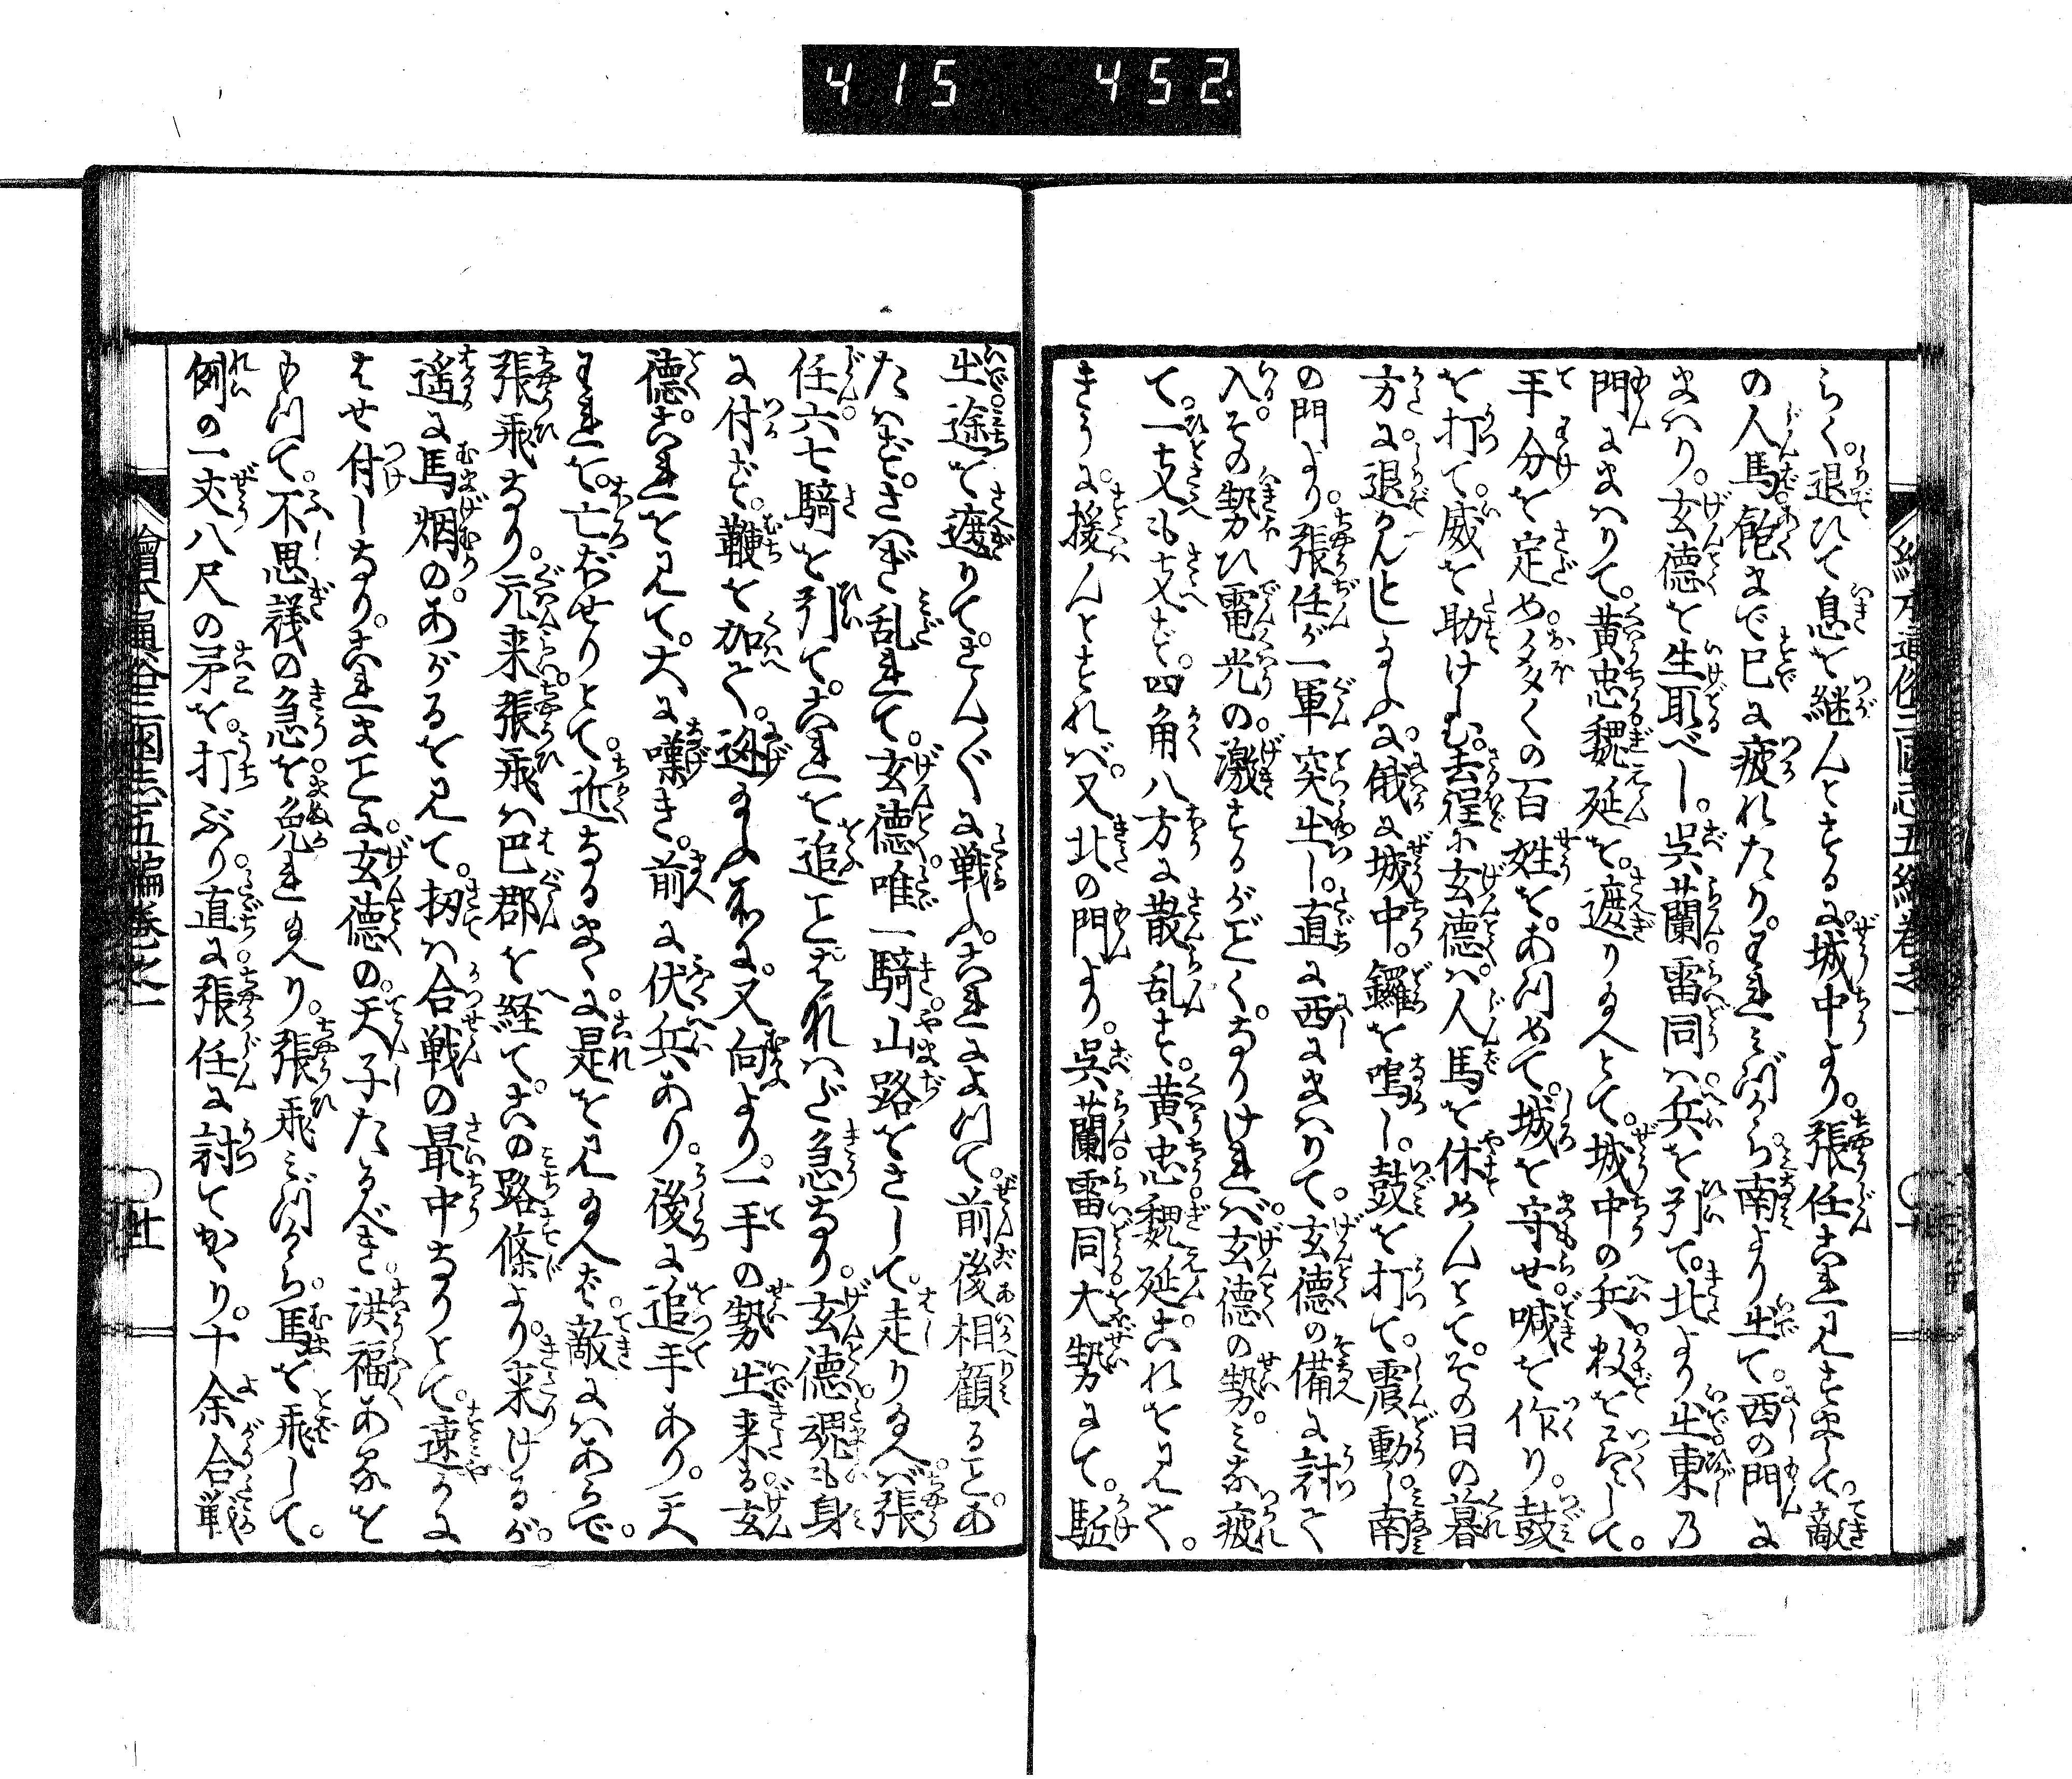 415 452.
らく。退ひて息を継んとするに。城中より。張任これ見すまして。敵
の人馬飽まで已に疲れたり。われみづから南より出て。西の門に
まハり。玄徳を生取べし。呉蘭雷同ハ兵を引て。北より出東乃
門にまハりて。黄忠魏延を。遮り給へとて。城中の兵数を尽して。
手分を定め。多くの百姓を。あつめて。城を守せ喊を作り。鼓
を打て。威を助けしむ。去程に玄徳ハ。人馬を休めんとて。その日の暮
方に。退かんとし給ふに。俄に城中。鑼を鳴し。鼓を打て。震動し。南
の門より。張任が一軍突出し。直に西にまハりて。玄徳の備に討て
入。その勢ひ電光の。激するがごとく。なりけれバ。玄徳の勢。ミな疲
て。一支も支ず。四角八方に散乱す。黄忠魏延。これを見て。
きうに。援んとすれバ。又北の門より。呉蘭雷同大勢にて。駈
出途を遮りて。さんぐに戦ふ。これによつて。前後相顧ること。あ
たハず。さハぎ乱れて。玄徳唯一騎。山路をさして。走り給へバ。張
任六七騎を引て。これを追ことはなハだ急なり。玄徳魂も身
に付ず。鞭を加て。逃給ふ所に。又向より。一手の勢出来る。玄
徳。これを見て。大に嘆き。前に伏兵あり。後に追手あり。天
われを。亡ぼせりとて。近なるまゝに。是を見給へば。敵にハあらで。
張飛なり。元来張飛ハ巴郡を経て。この路條より。来りけるが。
遥に馬烟の。あがるを見て。扨ハ合戦の最中なりとて。速かに
はせ付しなり。これまことに。玄徳の。天子たるべき。洪福ある を
もつて。不思議の急を免れ給へり。張飛ミづから。馬を飛して。
例の一丈八尺の矛を。打ふり。直に張任に討てかゝり。十余合戦
繪本通俗三國志五編巻之一